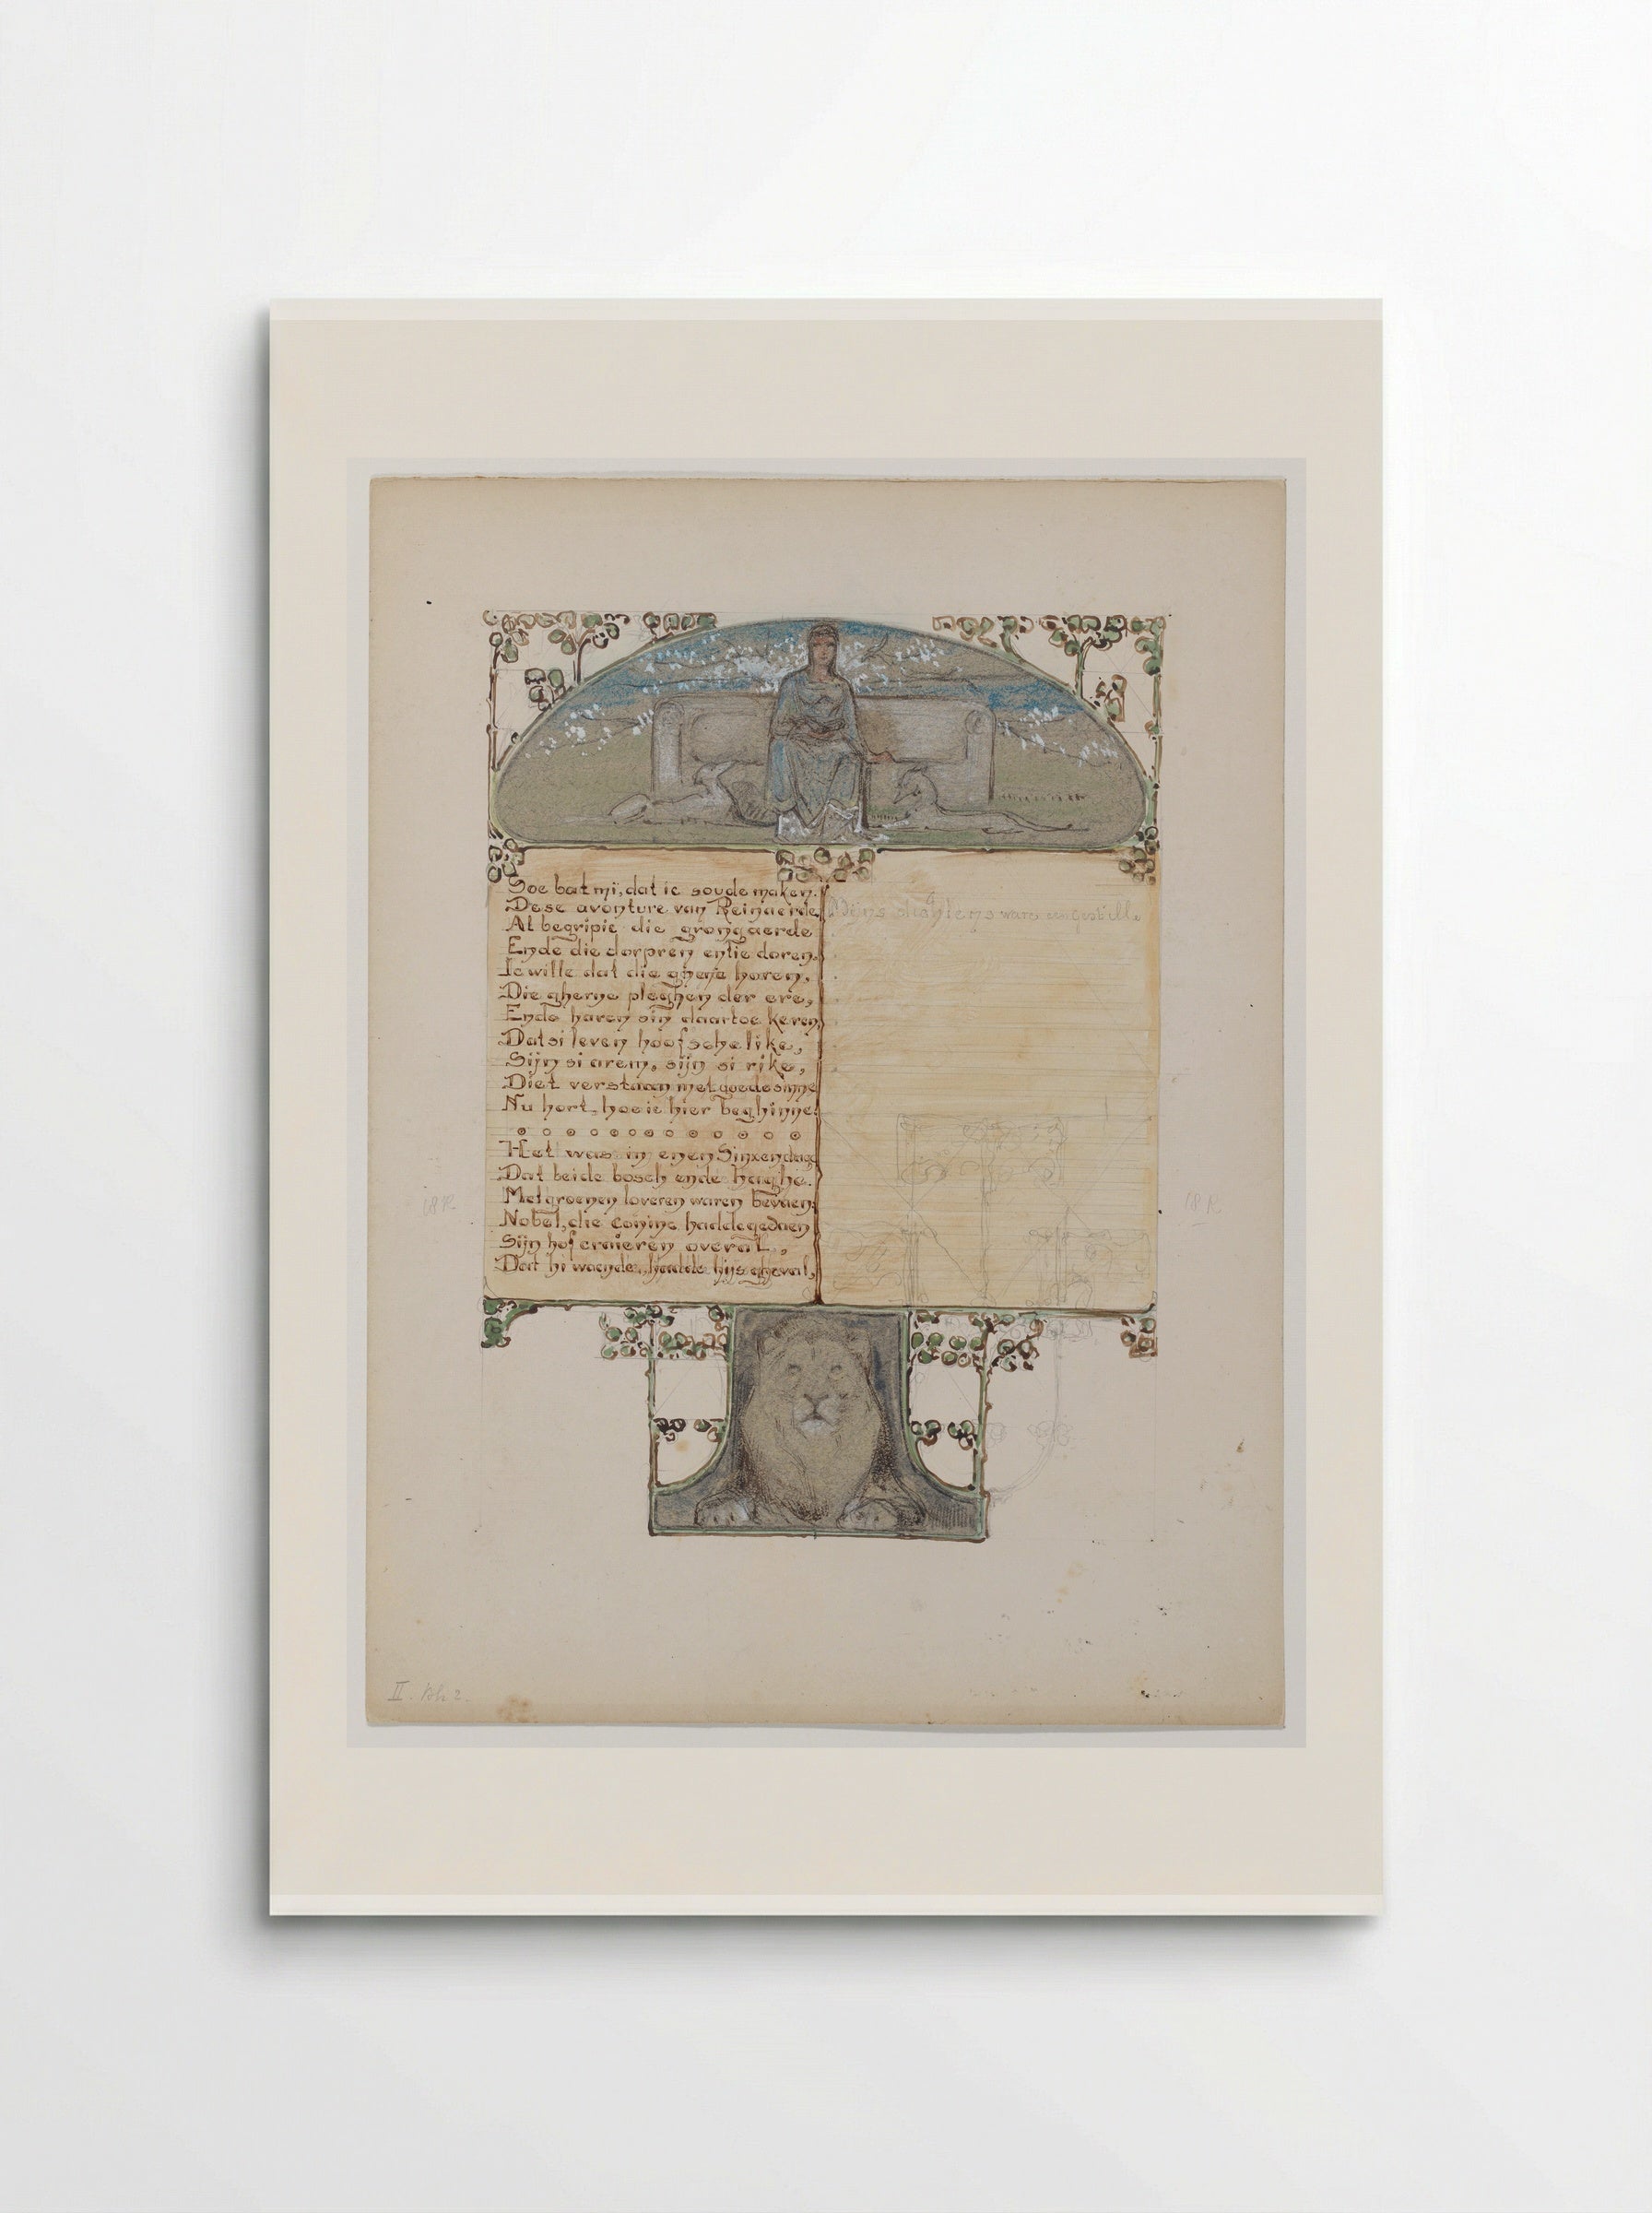 Soe bat mi, dat ic soude maken.
Dese avonture van Reinaerde
Al begripic die grongaerde
Ende die dorpren entie doren,
Ic wille dat die ghene horen,
Die gherne pleghen der ere,
Ende haren sin daartoe keren,
Dat si leven hoofschelike,
Sijn si arem, sijn si rike,
Diet verstaan met goede sinne
Nu hort, hoe ic hier beghinne.
Het was in enen Sinxendage
Dat beide bosch ende haghe.
Met groenen loveren waren bevaen
Nobel, die coninc hadde gedaen
Sijn hof craieren overal,
Dat hi waende, hadde hijs gheval,
II. Nr. 2.